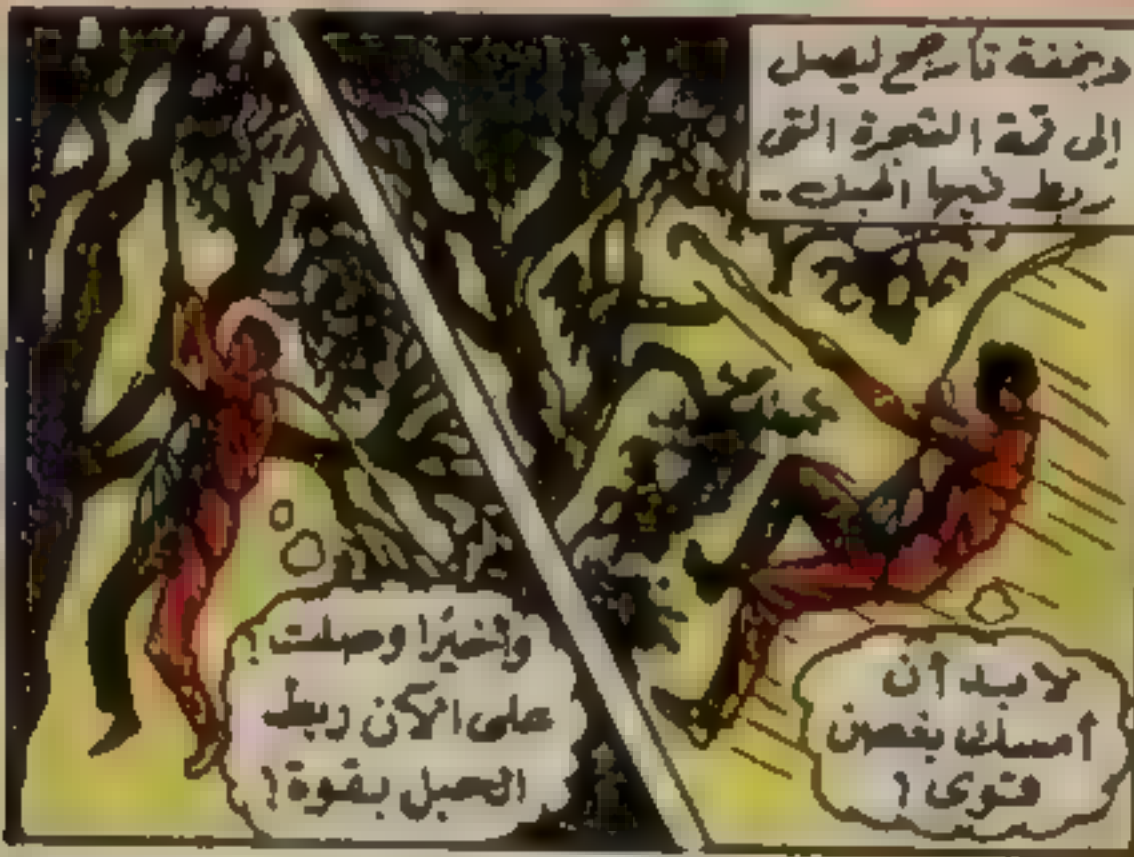 وبخفة تأرجح ليصل
إلى قمة الشجرة التى
ربط فيها الحبل..
لابد أن
أمسك بغصن
قوى !
وأخيرًا وصلت !
على الآن ربط
الحبل بقوة !